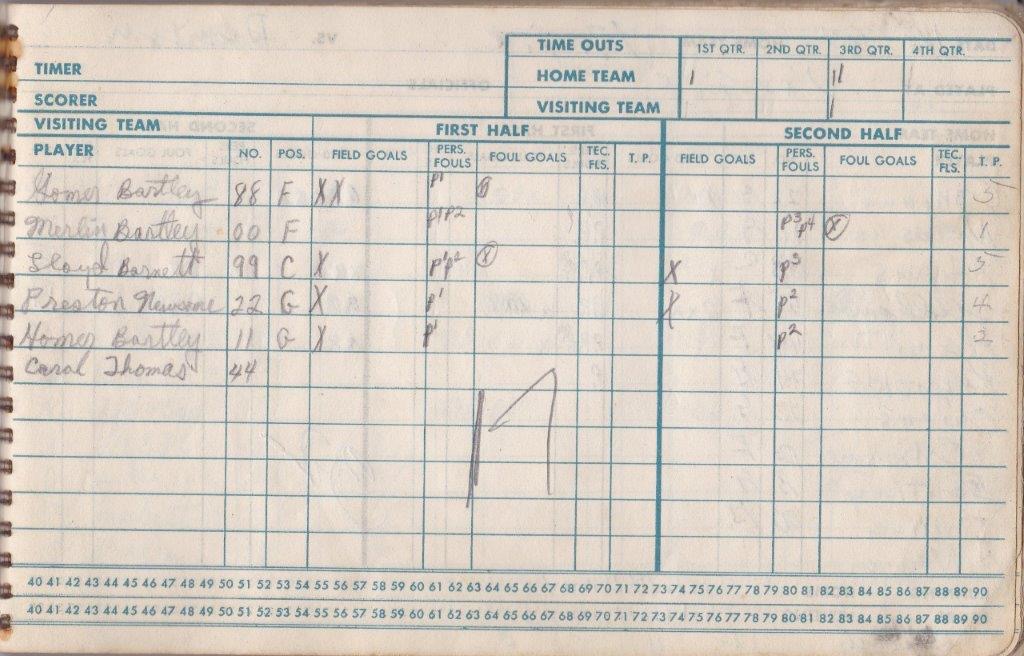 TIME OUTS 1ST QTR. 2ND QTR. 3RD QTR. 4TH QTR.
TIMER
HOME TEAM
SCORER
VISITING TEAM
VISITING TEAM FIRST HALF SECOND HALF
PLAYER NO. POS. FIELD GOALS PERS. FOULS FOUL GOALS TEC. FLS. T. P. FIELD GOALS PERS. FOULS FOUL GOALS TEC. FLS. T. P.
Homer Bartley 88 F XX P1 5
Merlin Bartley 00 F P1P2 P3P4 X 1
Lloyd Barnett 99 C X P1P2 X X P3 5
Preston Newsome 22 G X P1 X P2 4
Homer Bartley 11 G X P1 P2 2
Carol Thomas 44
17
40 41 42 43 44 45 46 47 48 49 50 51 52 53 54 55 56 57 58 59 60 61 62 63 64 65 66 67 68 69 70 71 72 73 74 75 76 77 78 79 80 81 82 83 84 85 86 87 88 89 90
40 41 42 43 44 45 46 47 48 49 50 51 52 53 54 55 56 57 58 59 60 61 62 63 64 65 66 67 68 69 70 71 72 73 74 75 76 77 78 79 80 81 82 83 84 85 86 87 88 89 90